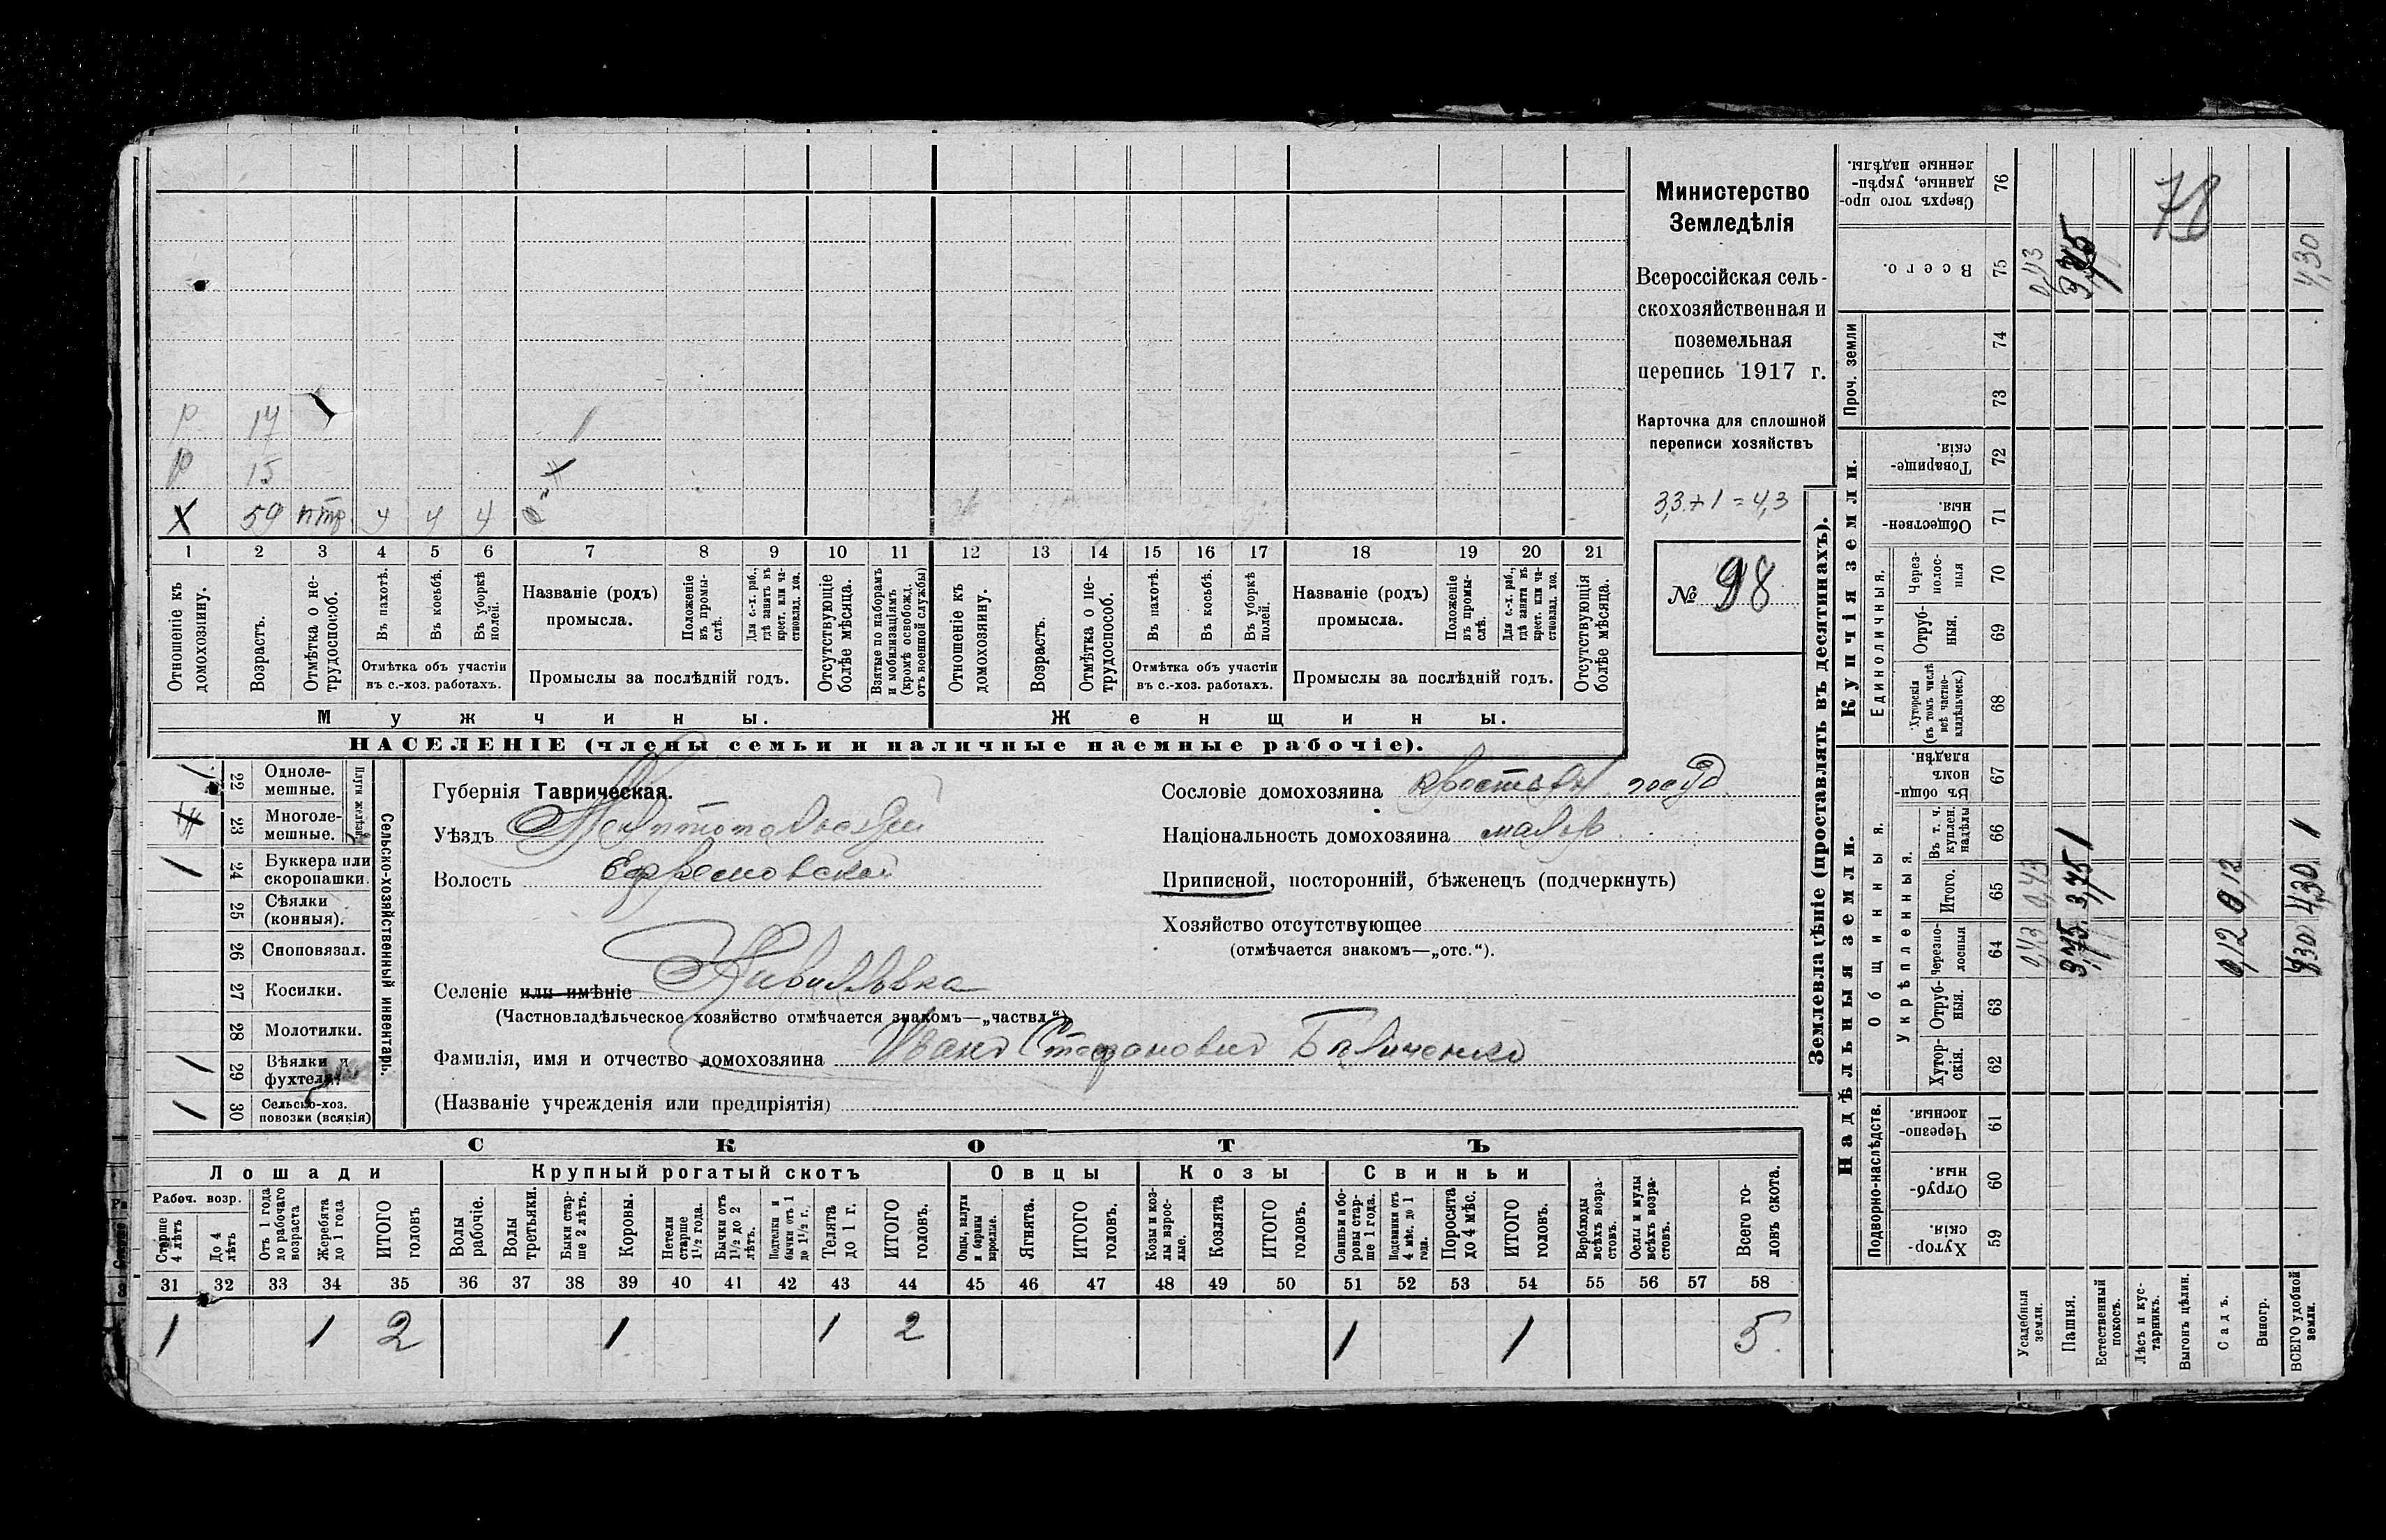 Министерство
Земледѣлія
Всероссійская сель-
скохозяйственная и
поземельная
перепись 1917 г.
Карточка для сплошной
переписи хозяйствъ
3,3 + 1 = 4,3
№ 98
р 17 1
р 15
Х 59 ч ч ч
1 2 3 4 5 6 7 8 9 10 11 12 13 14 15 16 17 18 19 20 21
Отношеніе къ домохозяину.
Возрастъ.
Отмѣтка о не-трудоспособ.
Въ пахотѣ.
Въ косьбѣ.
Въ уборкѣ полей.
Отмѣтка объ участіи
въ с.-хоз. работахъ.
Названіе (родъ)
промысла.
Положеніе въ промы-слѣ.
Для с.-х. раб., гдѣ занятъ въ крест. или ча-стновлад. хоз.
Промыслы за послѣдній годъ.
Отсутствующіе болѣе мѣсяца.
Взятые по наборамъ и мобилизаціямъ (кромѣ освобожд. отъ военной службы)
Отношеніе къ домохозяину.
Возрастъ.
Отмѣтка о не-трудоспособ.
Въ пахотѣ.
Въ косьбѣ.
Въ уборкѣ полей.
Отмѣтка объ участіи
въ с.-хоз. работахъ.
Названіе (родъ)
промысла.
Положеніе въ промы-слѣ.
Для с.-х. раб., гдѣ занята въ крест. или ча-стновлад. хоз.
Промыслы за послѣдній годъ.
Отсутствующія болѣе мѣсяца.
Мужчины.
Женщины.
НАСЕЛЕНІЕ (члены семьи и наличные наемные рабочіе).
Сельско-хозяйственный инвентарь.
Плуги желѣзн.
22 Одноле-мешные.
23 Многоле-мешные.
1 24 Буккера или скоропашки.
25 Сѣялки (конныя).
26 Сноповязал.
27 Косилки.
28 Молотилки.
1 29 Вѣялки и фухтеля.
1 30 Сельско-хоз. повозки (всякія)
Губернія Таврическая.
Уѣздъ Мелитопольскій
Волость Ефремовской
Сословіе домохозяина
Національность домохозяина малор.
Приписной, посторонній, бѣженецъ (подчеркнуть)
Хозяйство отсутствующее
(отмѣчается знакомъ—„отс.“).
Селеніе или имѣніе
(Частновладѣльческое хозяйство отмѣчается знакомъ—„частвл.“)
Фамилія, имя и отчество домохозяина Иванъ Стефановичъ
(Названіе учрежденія или предпріятія)
СКОТЪ
Лошади
Крупный рогатый скотъ
Овцы
Козы
Свиньи
Рабоч. возр.
Старше 4 лѣтъ
До 4 лѣтъ
Отъ 1 года до рабочаго возраста
Жеребята до 1 года
ИТОГО головъ
Волы рабочіе.
Волы третьяки.
Быки стар-ше 2 лѣтъ.
Коровы.
Нетели старше 1½ года.
Бычки отъ 1½ до 2 лѣтъ.
Подтелки и бычки отъ 1 до 1½ г.
Телята до 1 г.
ИТОГО головъ.
Овцы, валухи и бараны взрослые.
Ягнята.
ИТОГО головъ.
Козы и коз-лы взрос-лые.
Козлята
ИТОГО головъ.
Свиньи и бо-ровы стар-ше 1 года.
Подсвинки отъ 4 мѣс. до 1 года.
Поросята до 4 мѣс.
ИТОГО головъ.
Верблюды всѣхъ возра-стовъ.
Ослы и мулы всѣхъ возра-стовъ.
Всего го-ловъ скота.
31 32 33 34 35 36 37 38 39 40 41 42 43 44 45 46 47 48 49 50 51 52 53 54 55 56 57 58
1 1 2 1 1 2 1 1 5
Землевладѣніе (проставлять въ десятинахъ).
Надѣльныя земли.
Купчія земли.
Проч. земли
Подворно-наслѣдств.
Общинныя.
Укрѣпленныя.
Единоличныя.
Хутор-скія. 59
Отруб-ныя. 60
Черезпо-лосныя. 61
Хутор-скія. 62
Отруб-ныя. 63
Черезпо-лосныя 64
Итого. 65
Въ т. ч. куплен. надѣлы 66
Въ общин-номъ владѣн. 67
Хуторскія (въ томъ числѣ всѣ частно-владѣльческ.) 68
Отруб-ныя. 69
Через-полос-ныя 70
Обществен-ныя. 71
Товарище-скія. 72
73
74
Всего. 75
Сверхъ того про-данные, укрѣп-ленные надѣлы. 76
Усадебныя земли. 0,43 0,43 0,43
Пашня. 3,75 3,75 1
Естественный покосъ.
Лѣсъ и кус-тарникъ.
Выгонъ цѣлин.
Садъ. 0,12 0,12
Виногр.
ВСЕГО удобной земли. 4,30 4,30 1 4,30
78